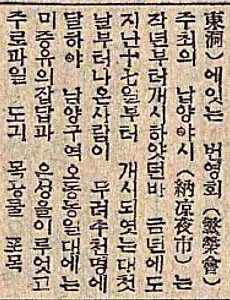 東洞)에잇는 번영회(繁榮會)
주최의 납양야시(納凉夜市)는
작년부터개시하얏던바 금년에도
지난十七일부터 개시되엿는대첫
날부터나온사람이 무려수천명에
달하야 남양구역오동동일대에는
미증유의잡답과 은성을이루엇고
주로파일 도긔 목공물 포목